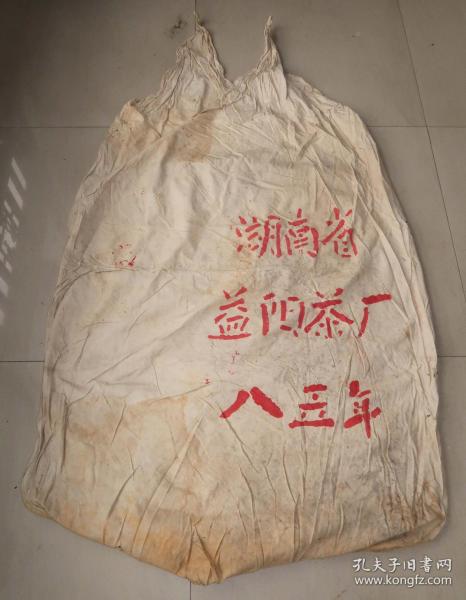 湖南省
益阳茶厂
八三年
孔夫子旧书网
www.kongfz.com